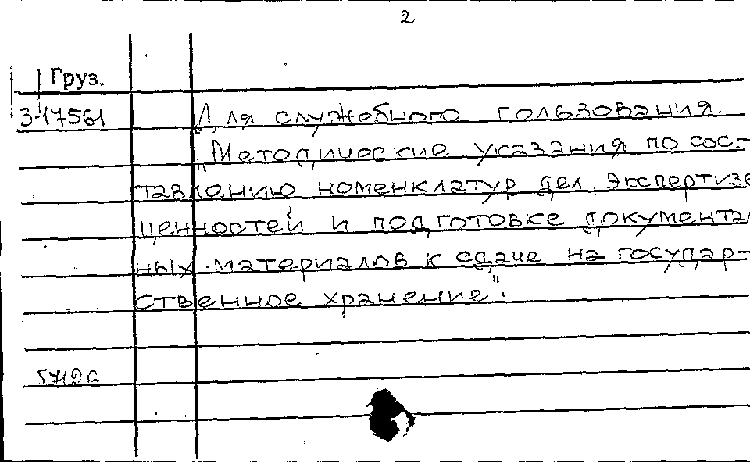 2
Груз.
3-17561
Для служебного пользования
"Методические указания по сос-
тавлению номенклатур дел, экспертизе
ценностей и подготовке документаль
ных материалов к сдаче на государ-
ственное хранение".